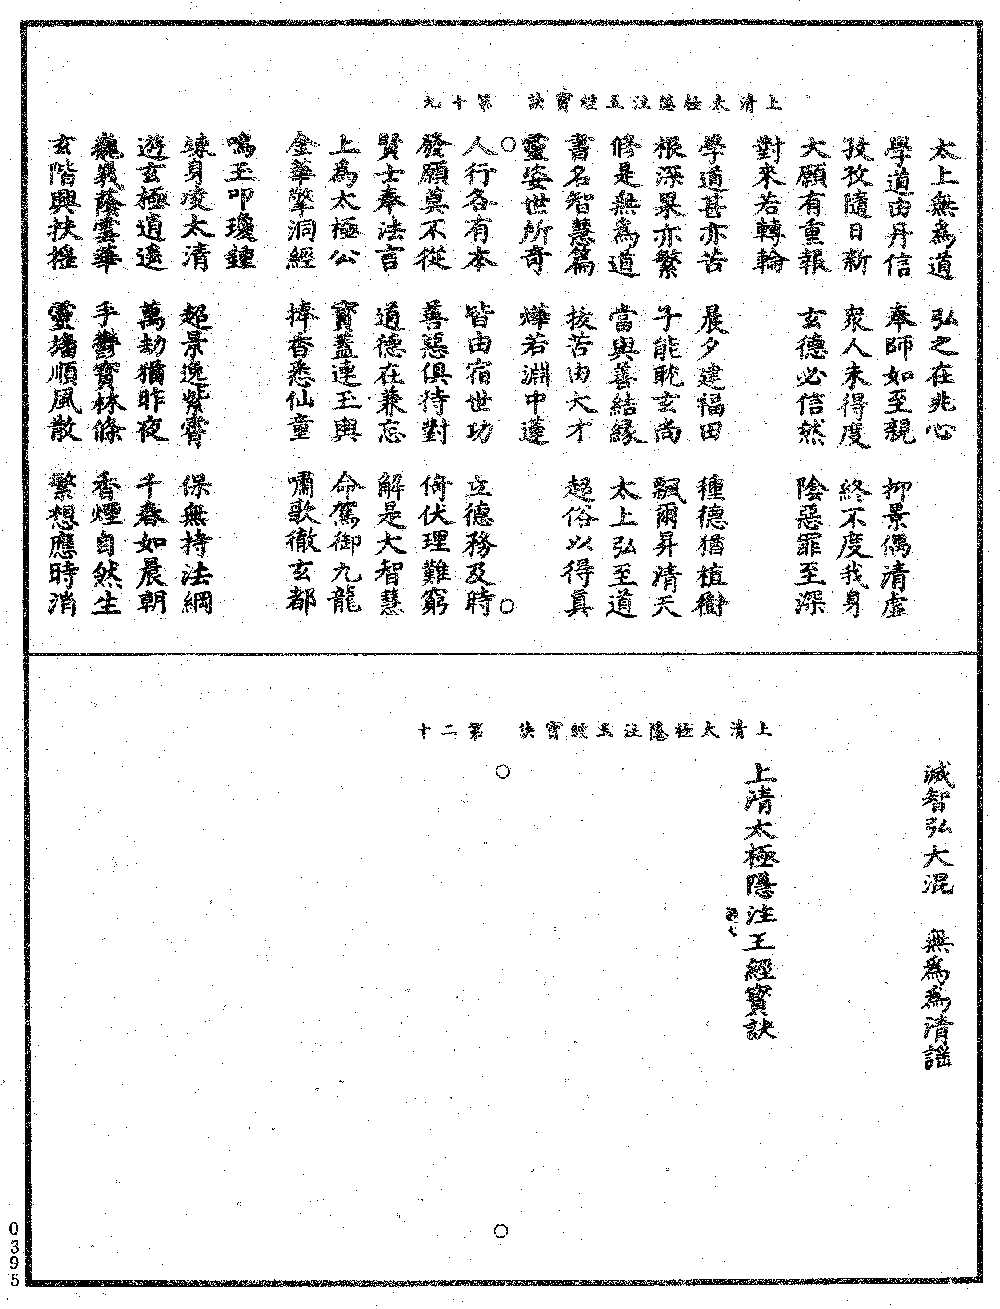 上清太極隱注玉經寶訣　第十九
太上無為道　弘之在兆心
學道由丹信　奉師如至親　抑景偶清虛
孜孜隨日新　衆人未得度　終不度我身
大願有重報　玄德必信然　陰惡罪至深
對來若轉輪
學道甚亦苦　晨夕建福田　種德猶植樹
根深果亦繁　子能耽玄尚　飄爾昇清天
修是無為道　當與善結緣　太上弘至道
書名智慧篇　拔苦由大才　超俗以得真
靈姿世所奇　煒若淵中蓮
人行各有本　皆由宿世功　立德務及時
發願莫不從　善惡俱待對　倚伏理難窮
賢士奉法言　道德在兼忘　解是大智慧
上為太極公　寶蓋連玉輿　命駕御九龍
金華擎洞經　捧香悉仙童　嘯歌徹玄都
鳴玉叩瓊鍾
竦身凌太清　超景逸紫霄　保無持法綱
遊玄極道遙　萬劫猶昨夜　千春如晨朝
巍峩蔭雲華　手攀寶林條　香煙自然生
玄階興扶搖　靈墦順風散　繁想應時消
上清太極隱注玉經寶訣　第二十
滅智弘大混　無為為清謠
上清太極隱注玉經寶訣